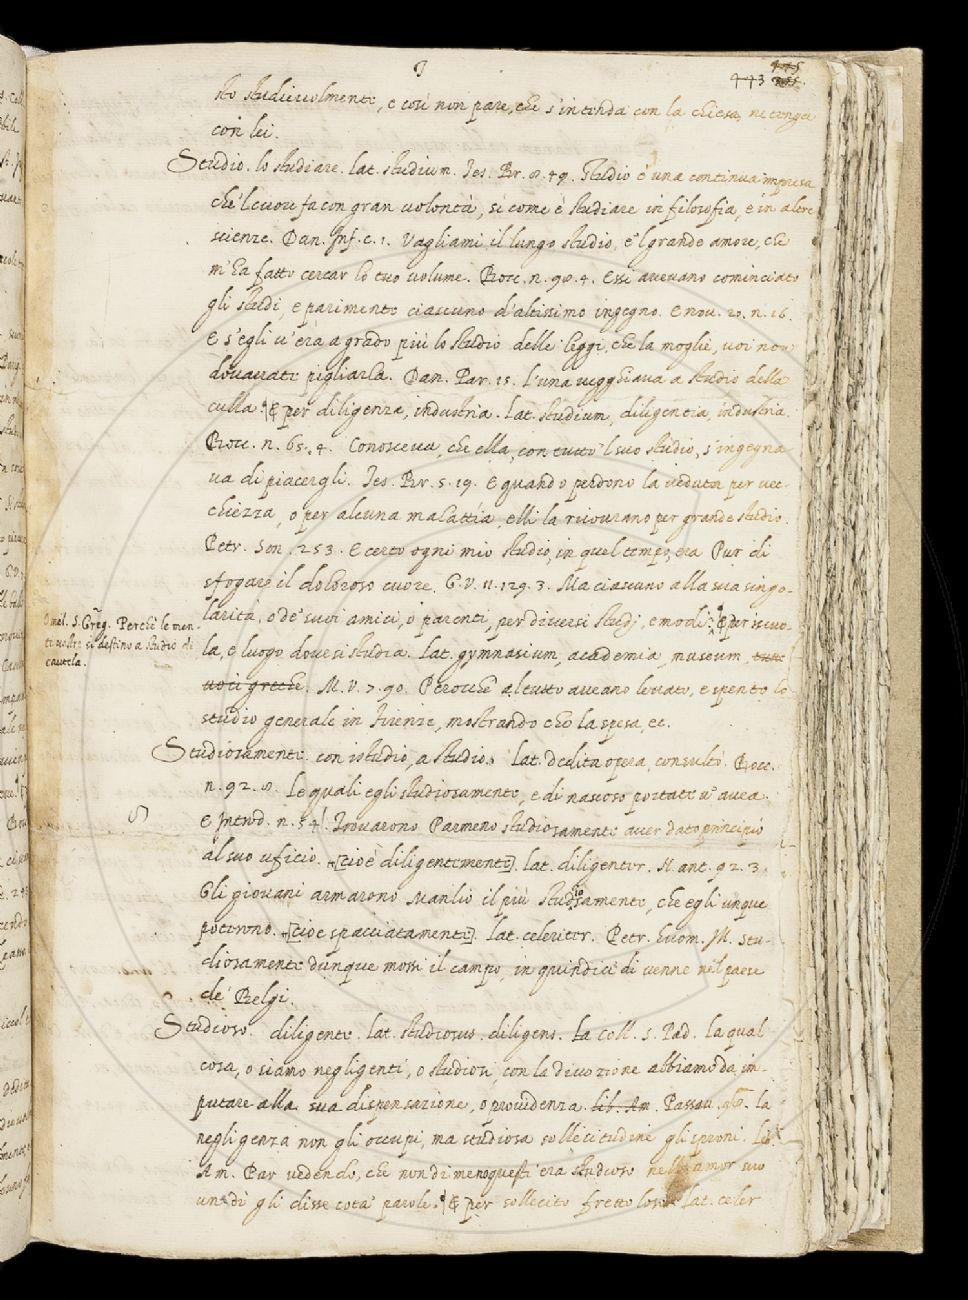 443 445 355.
sto studievolmente, e così non pare, che s'intenda con la chiesa, ne tenga
con lei.
Studio. lo studiare. lat. studium. Tes. Br. 8. 49. Studio è una continua impresa
che 'l cuor fa con gran volontà, si come è studiare in filosofia, e in altre
scienze. Dan. Inf. c. 1. Vagliami il lungo studio, e 'l grande amore, che
m'ha fatto cercar lo tuo volume. Bocc. n. 98. 4. Essi avevano cominciato
gli studi, e parimente ciascuno d'altissimo ingegno. E nov. 20. n. 16.
E s'egli v'era a grado più lo studio delle leggi, che la moglie, voi non
dovavate pigliarla. Dan. Par. 15. L'una vegghiava a studio della
culla. & per diligenza, industria. Lat. studium, diligentia, industria.
Bocc. n. 65. 4. Conosceva, che ella, con tutto 'l suo studio, s'ingegna
va di piacergli. Tes. Br. 5. 19. E quando perdono la veduta per vec-
chiezza, o per alcuna malattia, elli la ricovrano per grande studio.
Petr. Son. 253. E certo ogni mio studio, in quel tempo, era Pur di
sfogare il doloroso cuore. G. V. 11. 129. 3. Ma ciascuno alla sua singo-
larità, o de' suoi amici, o parenti, per diversi studj, e modi. & per iscuo-
Omel. S. Greg. Perchè le men
ti vostre si destino a studio di
cautela.
la, e luogo dove si studia. Lat. gymnasium, academia, museum tutte
voci greche. M. V. 7. 90. Perocchè al tutto aveano levato, e spento lo
studio generale in Firenze, mostrando che la spesa, ec.
Studiosamente. con istudio, a studio. Lat. dedita opera, consulto. Bocc.
n. 92. 8. Le quali egli studiosamente, e di nascoso portate v'avea.
E Introd. n. 54. Trovarono Parmeno studiosamente aver dato principio
al suo uficio. [cioè diligentemente]. lat. diligenter. N. ant. 92. 3.
Gli giovani armarono Manlio il più studiosamente, che egli unque
poterono. [cioè spacciatamente]. Lat. celeriter. Petr. huom. Ill. stu-
diosamente dunque mosse il campo, in quindici dì venne nel paese
de' Belgi.
Studioso. diligente. lat. studiosus. diligens. La Coll. S. Pad. La qual
cosa, o siamo negligenti, o studiosi, con la divozione abbiamo da im-
putare alla sua dispensazione, o providenza. lib. Am. Passav. La
negligenza non gli occupi, ma studiosa sollecitudine gli sproni. Lib.
Am. Par vedendo, che nondimeno questi era studioso nell' amor suo
un dì gli disse cota' parole. & per sollecito frettoloso. Lat. celer